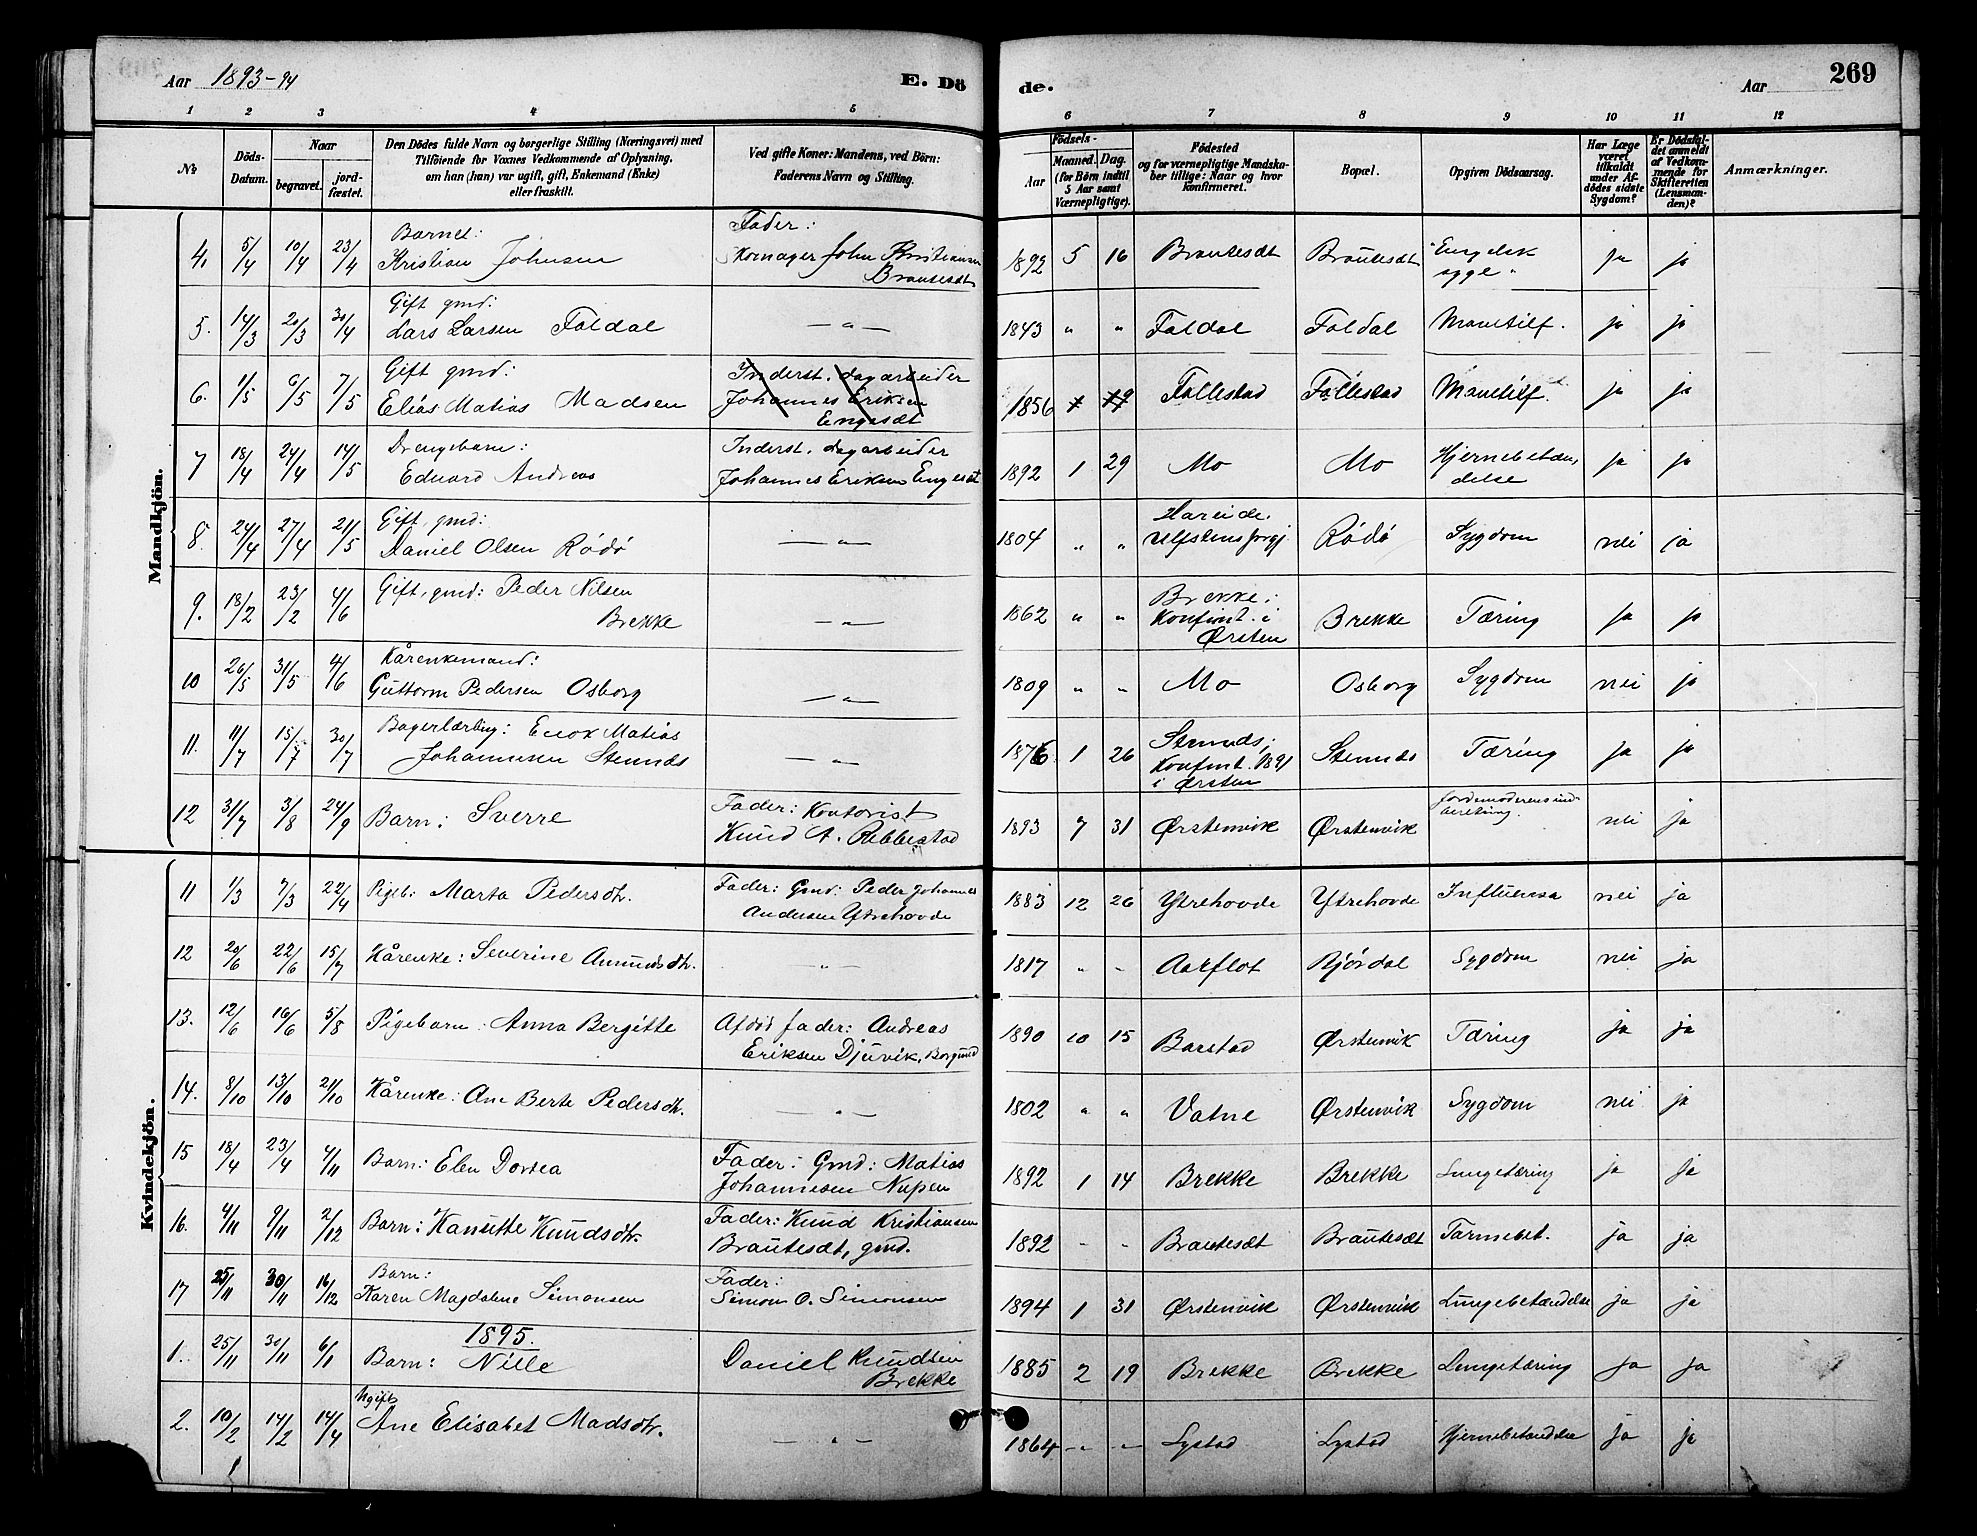 Aar 1893-94 E. Dö de. Aar 269
1 2 3 4 5 6 7 8 9 10 11 12
No. Döds-Datum. Naar begravet. jordfæstet. Den Dödes fulde Navn og borgerlige Stilling (Næringsvei) med Tilföiende for Voxnes Vedkommende af Oplysning, om han (hun) var ugift, gift, Enkemand (Enke) eller fraskilt. Ved gifte Koner: Mandens, ved Börn: Faderens Navn og Stilling. Födsels- Aar Maaned. Dag. (for Börn indtil 5 Aar samt Værnepligtige). Födested og for værnepligtige Mandskaber tillige: Naar og hvor konfirmeret. Bopæl. Opgiven Dödsaarsag. Har Læge været tilkaldt under Afdödes sidste Sygdom? Er Dödsfaldet anmeldt af Vedkommende for Skifteretten (Lensmanden)? Anmærkninger.
Mandkjön.
4. 5/4 10/4 23/4 Barnet: Kristian Johnsen Fader: Skomager John Kristiansen Brautesdt 1892 5 16 Brautesdt Brautesdt Engelsk syge ja ja
5. 14/3 20/3 30/4 Gift gmd: Lars Larsen Foldal — " — 1843 " " Foldal Foldal Mavetilf. ja ja
6. 1/5 6/5 7/5 Gift gmd: Elias Matias Madsen Inderst. dagarbeider Johannes Eriksen Engesdt 1856 Follestad Follestad Mavetilf. ja ja
7 18/4 24/4 14/5 Drengebarn: Edvard Andreas Inderst. dagarbeider Johannes Eriksen Engesdt 1892 1 29 Mo Mo Hjernebetændelse ja ja
8. 24/4 27/4 21/5 Gift, gmd: Daniel Olsen Rödö — " — 1804 " " Hareide. Ulfstens Rödö Sygdom nei ja
9. 18/2 23/2 4/6 Gift, gmd: Peder Nilsen Brekke — " — 1862 " " Brekke; Konfirmt. i Ørsten Brekke Tæring ja ja
10 26/5 31/5 4/6 Kårenkemand: Guttorm Pedersen Osborg — " — 1809 " " Mo Osborg Sygdom nei ja
11. 11/7 15/7 30/7 Bagerlærling: Enok Matias Johannesen Stennds — " — 1876 1 26 Stennds, Konfirmt. 1891 i Ørsten Stennds Tæring ja ja
12 31/7 3/8 24/9 Barn: Sverre Fader: Kontorist Knud A. Rebbestad 1893 7 31 Ørstenvik Ørstenvik Jordemoderens indberetning. nei ja
Kvindekjön.
11 1/3 7/3 22/4 Pigeb: Marta Pedersdtr. Fader: Gmd: Peder Johannes Andersen Ytrehovde 1883 12 26 Ytrehovde Ytrehovde Influensa nei ja
12 20/6 22/6 15/7 Kårenke: Severine Amundsdtr. — " — 1817 " " Aarflot Bjørdal Sygdom nei ja
13. 12/6 16/6 5/8 Pigebarn: Anna Bergitte Afdöd fader: Andreas Eriksen Djuvik, Borgund 1890 10 15 Barstad Ørstenvik Tæring ja ja
14. 8/10 13/10 21/10 Kårenke: Ane Berte Pedersdtr. — " — 1802 " " Vatne Ørstenvik Sygdom nei ja
15 18/4 23/4 4/11 Barn: Elen Dortea Fader: Gmd: Matias Johannesen Nupen 1892 1 14 Brekke Brekke Lungetæring ja ja
16. 4/11 9/11 2/12 Barn: Kanutte Knudsdtr. Fader: Knud Kristiansen Brautesdt, gmd. 1892 - - Brautesdt Brautesdt Tarmebet. ja ja
17 25/11 30/11 16/12 Barn: Karen Magdalene Simonsen Fader: Simon O. Simonsen 1894 1 31 Ørstenvik Ørstenvik Lungebetændelse ja ja
1895.
1. 25/11 30/11 6/1 Barn: Nille Daniel Knudsen Brekke 1885 2 19 Brekke Brekke Lungetæring ja ja
2. 10/2 14/2 14/4 Ugift Ane Elisabet Madsdtr. — " — 1864 - - Lystad Lystad Hjernebetændelse ja ja